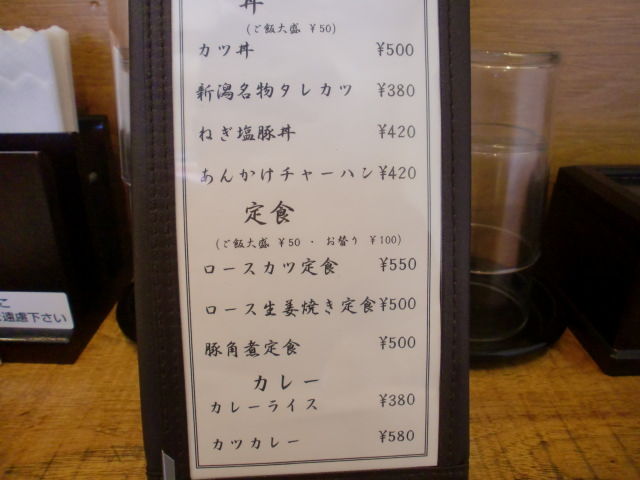 丼
(ご飯大盛 ¥50)
カツ丼 ¥500
新潟名物タレカツ ¥380
ねぎ塩豚丼 ¥420
あんかけチャーハン ¥420
定食
(ご飯大盛 ¥50 ・ お替り ¥100)
ロースカツ定食 ¥550
ロース生姜焼き定食 ¥500
豚角煮定食 ¥500
カレー
カレーライス ¥380
カツカレー ¥580
遠慮下さい